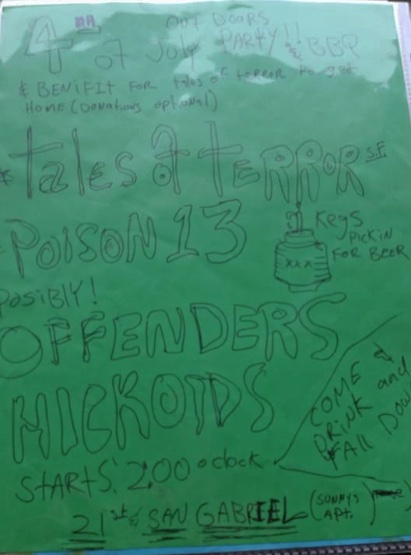 OUT DOORS
4th of JULY PARTY!! & BBQ
& BENIFIT FOR tales of terror to get
HOME (DONATIONS OPTIONAL)
* tales of tERROR SF
POISON 13
KEGS
PICKIN
FOR BEER
XXX
POSIBLY!
OFFENDERS
HICKOIDS
COME &
DRINK and
FALL DOWN
STARTS: 2:00 o clock
21st & SAN GABRIEL (SONNYS
APT.